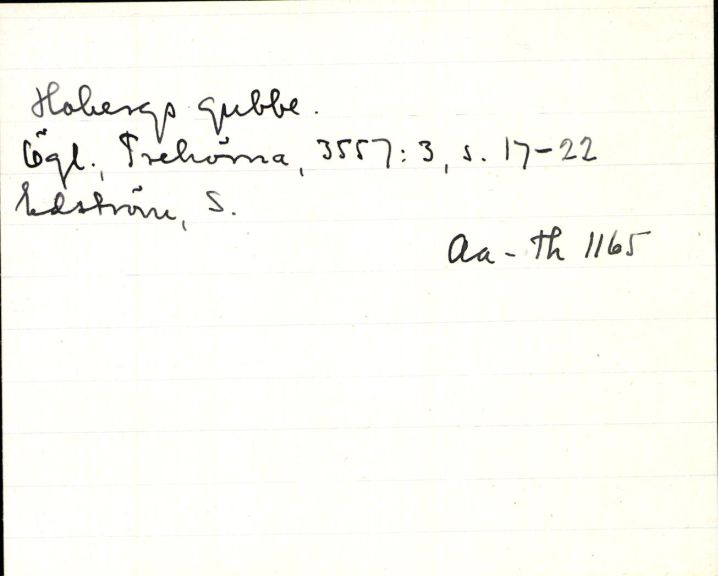 Hobergs gubbe.
Ögl., Trehörna, 3557:3, s. 17-22
Edström, S.
Aa-Th 1165